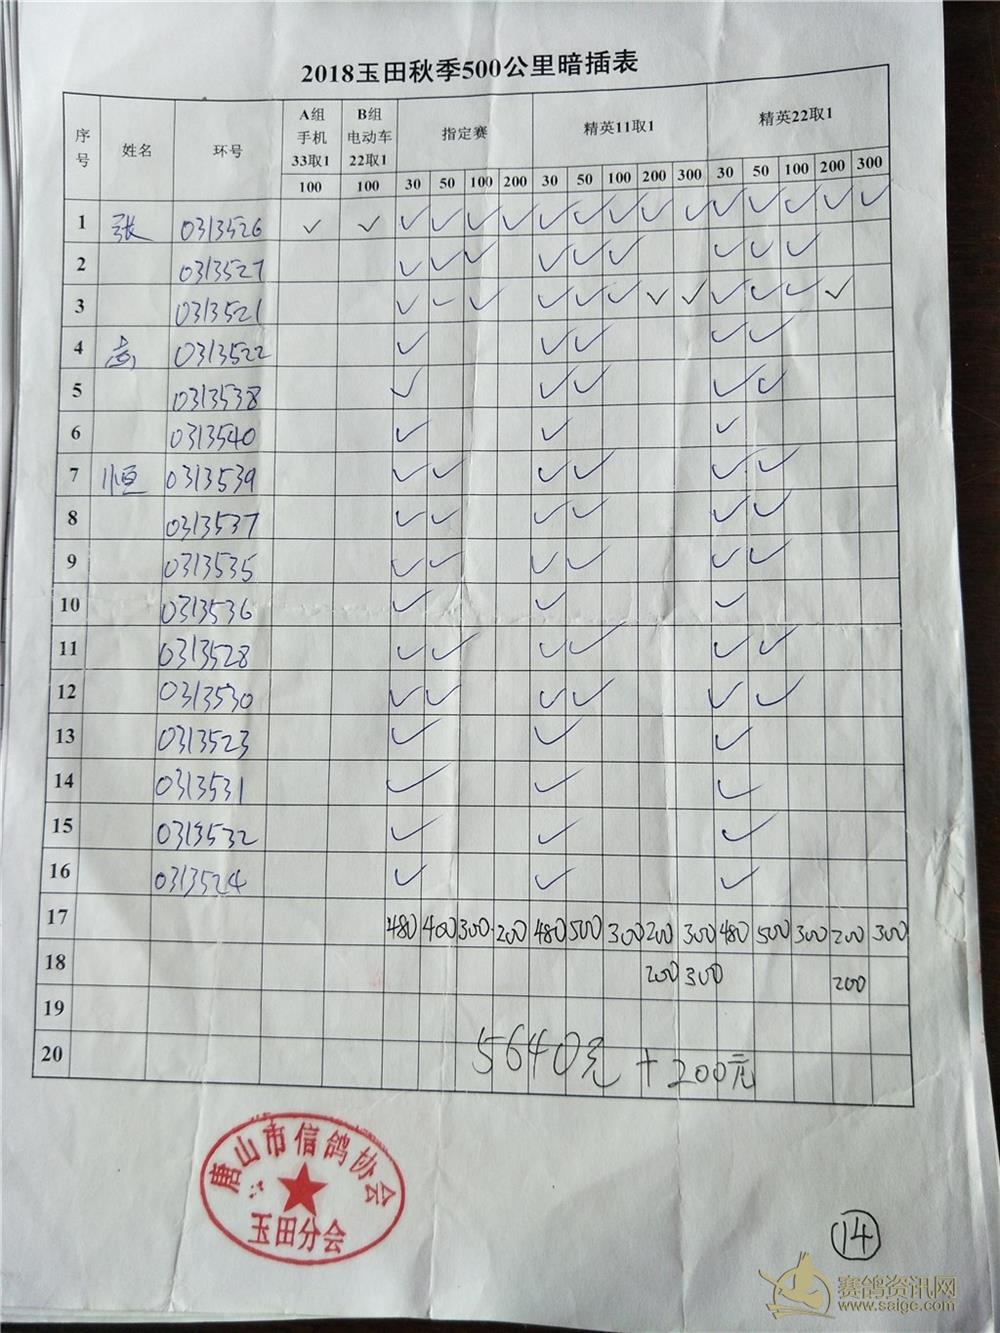 2018玉田秋季500公里暗插表
序号 姓名 环号 A组手机33取1 B组电动车22取1 指定赛 精英11取1 精英22取1
100 100 30 50 100 200 30 50 100 200 300 30 50 100 200 300
1 张 0313526 ✓ ✓ ✓ ✓ ✓ ✓ ✓ ✓ ✓ ✓ ✓ ✓ ✓ ✓ ✓ ✓
2 0313527 ✓ ✓ ✓ ✓ ✓ ✓ ✓ ✓ ✓
3 0313521 ✓ ✓ ✓ ✓ ✓ ✓ ✓ ✓ ✓ ✓ ✓ ✓
4 高 0313522 ✓ ✓ ✓ ✓ ✓
5 0313538 ✓ ✓ ✓ ✓ ✓
6 0313540 ✓ ✓ ✓
7 恒 0313539 ✓ ✓ ✓ ✓ ✓ ✓
8 0313537 ✓ ✓ ✓ ✓ ✓ ✓
9 0313535 ✓ ✓ ✓ ✓ ✓ ✓
10 0313536 ✓ ✓ ✓
11 0313528 ✓ ✓ ✓ ✓ ✓ ✓
12 0313530 ✓ ✓ ✓ ✓ ✓ ✓
13 0313523 ✓ ✓ ✓
14 0313531 ✓ ✓ ✓
15 0313532 ✓ ✓ ✓
16 0313524 ✓ ✓ ✓
17 480 400 300 200 480 500 300 200 300 480 500 300 200 300
18 200 300 200
19
20 5640元 + 200元
唐山市信鸽协会
玉田分会
14
赛鸽资讯网
www.saige.com